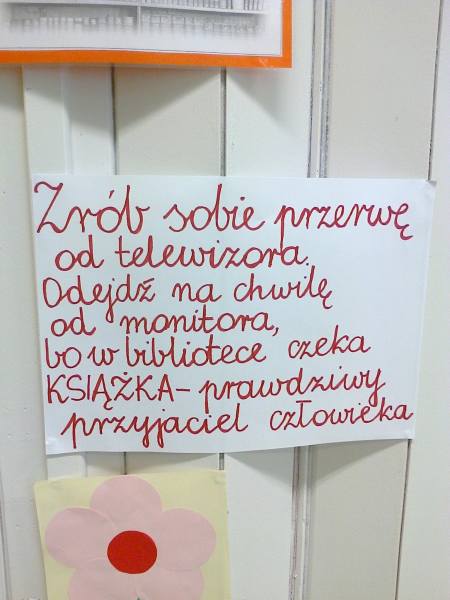 Zrób sobie przerwę
od telewizora.
Odejdź na chwilę
od monitora,
bo w bibliotece czeka
KSIĄŻKA - prawdziwy
przyjaciel człowieka